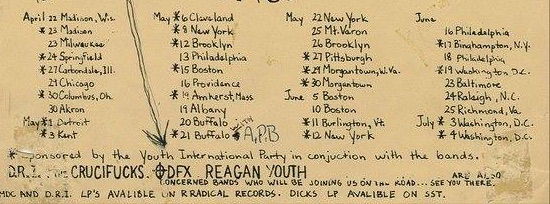 April 22 Madison, Wis.
* 23 Madison
23 Milwaukee
* 24 Springfield
* 27 Carbondale, Ill.
29 Chicago
* 30 Columbus, Oh.
30 Akron
May * 1 Detroit
* 3 Kent
May * 6 Cleveland
* 8 New York
* 12 Brooklyn
13 Philadelphia
* 15 Boston
16 Providence
* 19 Amherst, Mass
19 Albany
20 Buffalo
* 21 Buffalo with A.P.B
May 22 New York
25 Mt. Veron
26 Brooklyn
* 27 Pittsburgh
* 29 Morgantown, W. Va.
* 30 Morgantown
June 5 Boston
10 Boston
* 11 Burlington, Vt
* 12 New York
June
16 Philadelphia
* 17 Binghampton, N.Y.
18 Philadelphia
* 19 Washington, D.C.
23 Baltimore
24 Raleigh, N.C.
25 Richmond, Va.
July * 3 Washington, D.C.
* 4 Washington, D.C.
* sponsored by the Youth International Party in conjuction with the bands.
D.R.I. THE CRUCIFUCKS. DFX REAGAN YOUTH ARE ALSO
CONCERNED BANDS WHO WILL BE JOINING US ON THE ROAD... SEE YOU THERE.
MDC AND D.R.I. LP'S AVALIBLE ON R RADICAL RECORDS. DICKS LP AVALIBLE ON SST.